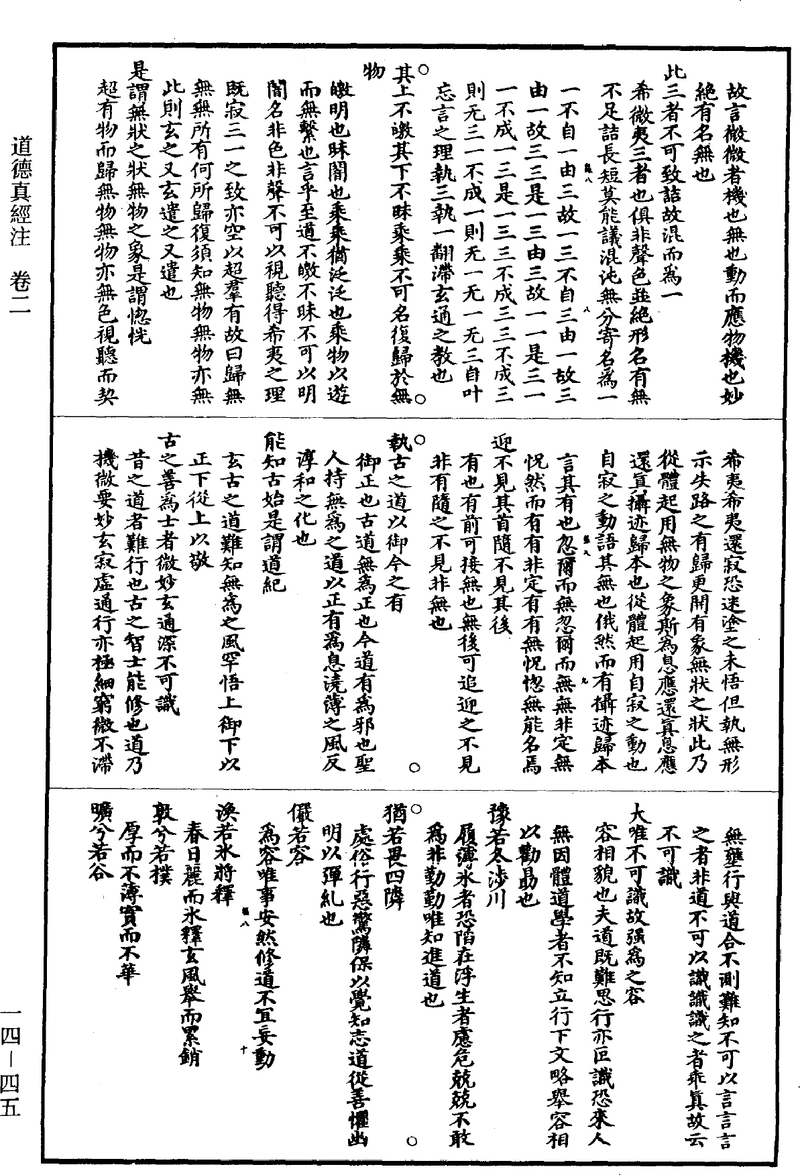 道德真經注 卷二
故言微微者機也無也動而應物機也妙
絶有名無也
此三者不可致詰故混而爲一
希微夷三者也俱非聲色並絶形名有無
不足詰長短莫能議混沌無分寄名爲一
一不自一由三故一三不自三由一故三
由一故三三是一三由三故一一是三一
一不成一三是一三三不成三三不成三
則无三一不成一則无一无一无三自叶
忘言之理執三執一翻滯玄通之教也
其上不皦其下不昧乘乘不可名復歸於無
物
皦明也昧闇也乘乘猶泛泛也乘物以遊
而無繫也言乎至道不皦不昧不可以明
闇名非色非聲不可以視聽得希夷之理
既寂三一之致亦空以超羣有故曰歸無
無無所有何所歸復須知無物無物亦無
此則玄之又玄遣之又遣也
是謂無狀之狀無物之象是謂惚恍
超有物而歸無物無物亦無色視聽而契
希夷希夷還寂恐迷塗之未悟但執無形
示失路之有歸更開有象無狀之狀此乃
從體起用無物之象斯爲息應還真息應
還真攝迹歸本也從體起用自寂之動也
自寂之動語其無也俄然而有攝迹歸本
言其有也忽爾而無忽爾而無無非定無
怳然而有有非定有有無怳惚無能名焉
迎不見其首隨不見其後
有也有前可接無也無後可追迎之不見
非有隨之不見非無也
執古之道以御今之有
御正也古道無爲正也今道有爲邪也聖
人持無爲之道以正有爲息澆薄之風反
淳和之化也
能知古始是謂道紀
玄古之道難知無爲之風罕悟上御下以
正下從上以敬
古之善爲士者微妙玄通深不可識
昔之道者難行也古之智士能修也道乃
機微要妙玄寂虛通行亦極細窮微不滯
無壅行與道合不測難知不可以言言言
之者非道不可以識識識之者乖真故云
不可識
夫唯不可識故强爲之容
容相貌也夫道既難思行亦叵識恐來人
無因體道學者不知立行下文略舉容相
以勸勗也
豫若冬涉川
履薄氷者恐陷在浮生者應危兢兢不敢
爲非勤勤唯知進道也
猶若畏四隣
處俗行惡驚隣保以覺知志道從善懼幽
明以彈糺也
儼若容
爲容唯事安然修道不宜妄動
渙若氷將釋
春日麗而氷釋玄風舉而累銷
敦兮若樸
厚而不薄實而不華
曠兮若谷
一四—四五